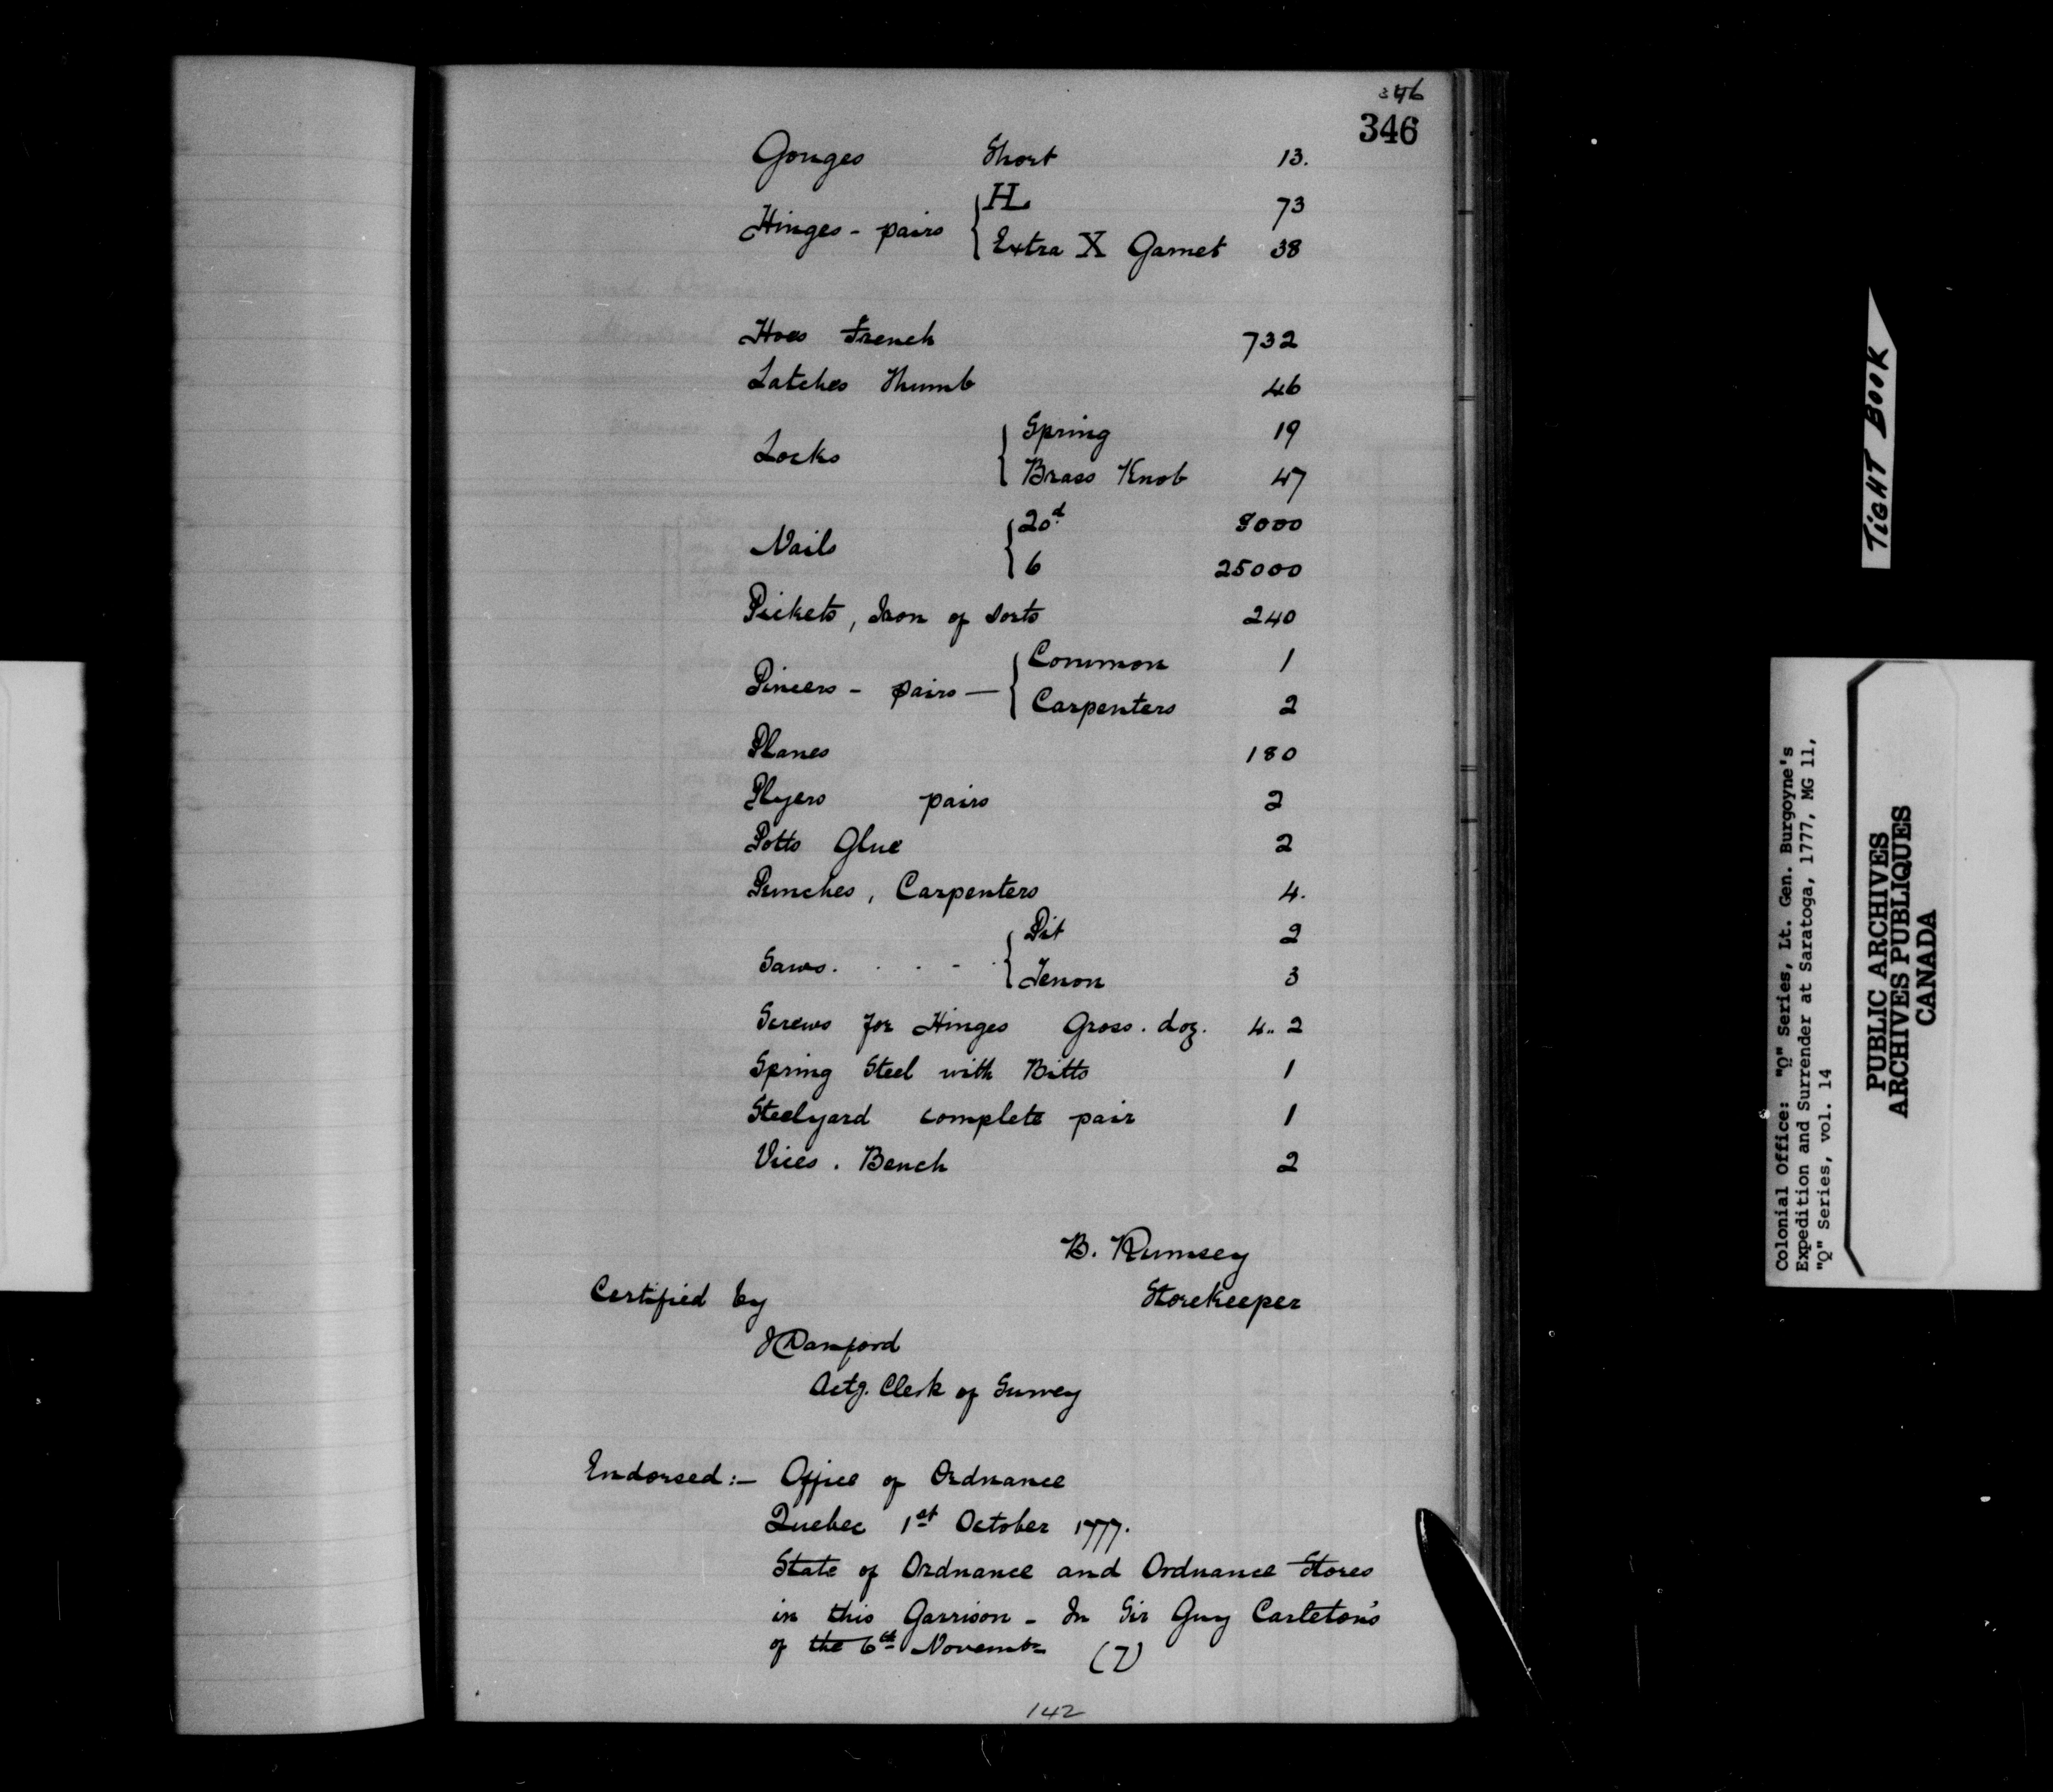 346
346
Gouges Short 13.
Hinges - pairs { H 73
Extra X Garnet 38
Hoes French 732
Latches Thumb 46
Locks { Spring 19
Brass Knob 47
Nails { 20d. 8000
6 25000
Pickets, Iron of sorts 240
Pincers - pairs — { Common 1
Carpenters 2
Planes 180
Plyers pairs 2
Potts Glue 2
Punches, Carpenters 4.
Saws. . . - . { Pit 2
Tenon 3
Screws for Hinges Gross. doz. 4.. 2
Spring Steel with Bitts 1
Steelyard complete pair 1
Vices. Bench 2
B. Rumsey
Certified by Storekeeper
J Danford
Actg. Clerk of Survey
Endorsed:- Office of Ordnance
Quebec 1st October 1777.
State of Ordnance and Ordnance Stores
in this Garrison - In Sir Guy Carleton's
of the 6th Novembr (7)
142
TiGHT BOOK
Colonial Office: "Q" Series, Lt. Gen. Burgoyne's
Expedition and Surrender at Saratoga, 1777, MG 11,
"Q" Series, vol. 14
PUBLIC ARCHIVES
ARCHIVES PUBLIQUES
CANADA